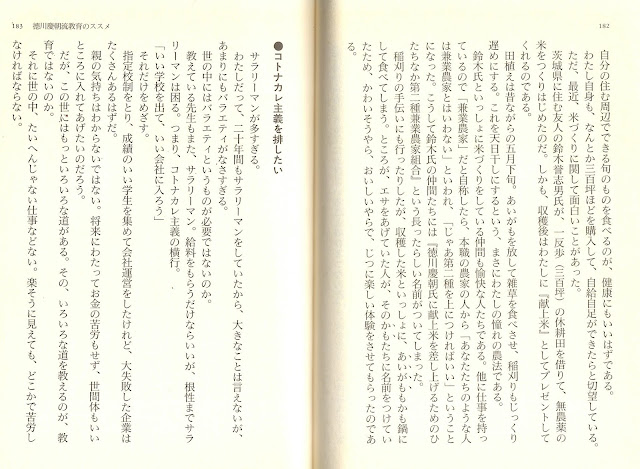 182
自分の住む周辺でできる旬のものを食べるのが、健康にもいいはずである。
わたし自身も、なんとか三百坪ほどを購入して、自給自足ができたらと切望している。
ただ、最近、米づくりに関して面白いことがあった。
茨城県に住む友人の鈴木誉志男氏が、一反歩(三百坪)の休耕田を借りて、無農薬の
米をつくりはじめたのだ。しかも、収穫後はわたしに『献上米』としてプレゼントして
くれるのである。
田植えは昔ながらの五月下旬。あいがもを放して雑草を食べさせ、稲刈りもじっくり
遅めにする。これを天日干しにするという、まさにわたしの憧れの農法である。
鈴木氏といっしょに米づくりをしている仲間も愉快な人たちである。他に仕事を持っ
ているので「兼業農家」だと自称したら、本職の農家の人から「あなたたちのような人
は兼業農家とはいわない」といわれ、「じゃあ第二種を上につければいい」ということ
になった。こうして鈴木氏の仲間たちには『徳川慶朝氏に献上米を差し上げるためのひ
たちなか第二種兼業農家組合』という長ったらしい名前がついてしまった。
稲刈りの手伝いにも行ったりしたが、収穫した米といっしょに、あいがもかも鍋に
して食べてしまう。ところが、エサをあげていた人が、そのかもたちに名前をつけてい
たため、かわいそうやら、おいしいやらで、じつに楽しい体験をさせてもらったのであ
る。
183 徳川慶朝流教育のススメ
●コトナカレ主義を排したい
サラリーマンが多すぎる。
わたしだって、二十年間もサラリーマンをしていたから、大きなことは言えないが、
あまりにもバラエティがなさすぎる。
世の中にはバラエティというものが必要ではないのか。
教えている先生もまた、サラリーマン。給料をもらうだけならいいが、根性までサラ
リーマンは困る。つまり、コトナカレ主義の横行。
「いい学校を出て、いい会社に入ろう」
それだけをめざす。
指定校制をとり、成績のいい学生を集めて会社運営をしたけれど、大失敗した企業は
たくさんあるはずだ。
親の気持ちはわからないではない。将来にわたってお金の苦労もせず、世間体もいい
ところに入れてあげたいのだろう。
だが、この世にはもっといろいろな道がある。その、いろいろな道を教えるのが、教
育ではないのか。
それに世の中、たいへんじゃない仕事などない。楽そうに見えても、どこかで苦労し
なければならない。